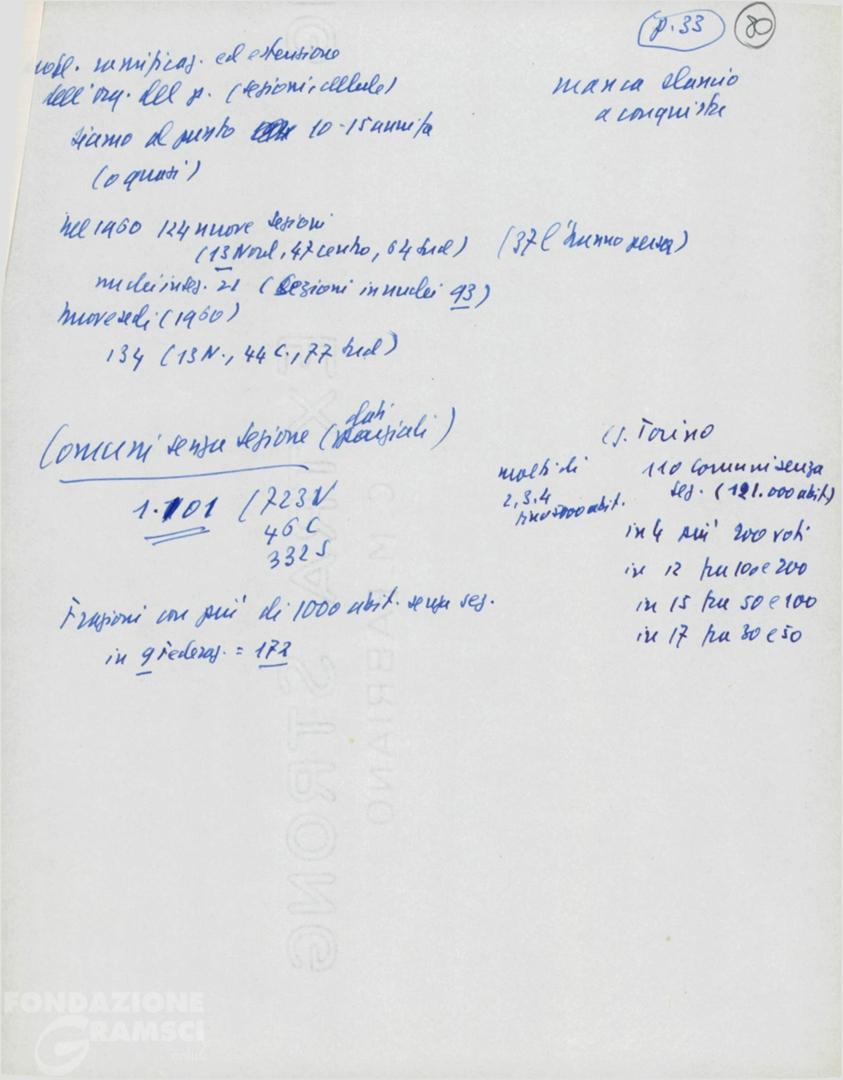 p. 33 80
probl. ramificaz. ed estensione
dell'org. del p. (sezioni, cellule)
manca slancio
a conquista
siamo al punto 10-15 anni fa
(o quasi)
nel 1960 124 nuove sezioni
(13 Nord, 47 centro, 64 Sud) (37 l'hanno persa)
nuclei in sez. 21 (Sezioni in nuclei 93)
nuove sedi (1960)
134 (13 N., 44 C., 77 Sud)
Comuni senza sezione (dati parziali)
1.101 (723 N
46 C
332 S
(s. Torino
110 comuni senza
sez. (121.000 abit)
molti di
2, 3, 4
abit.
in 4 più 200 voti
in 12 fra 100 e 200
in 15 fra 50 e 100
in 17 fra 30 e 50
Frazioni con più di 1000 abit. senza sez.
in 9 Federaz. = 172
EXTRA STRONG
C.M. FABRIANO
FONDAZIONE
GRAMSCI